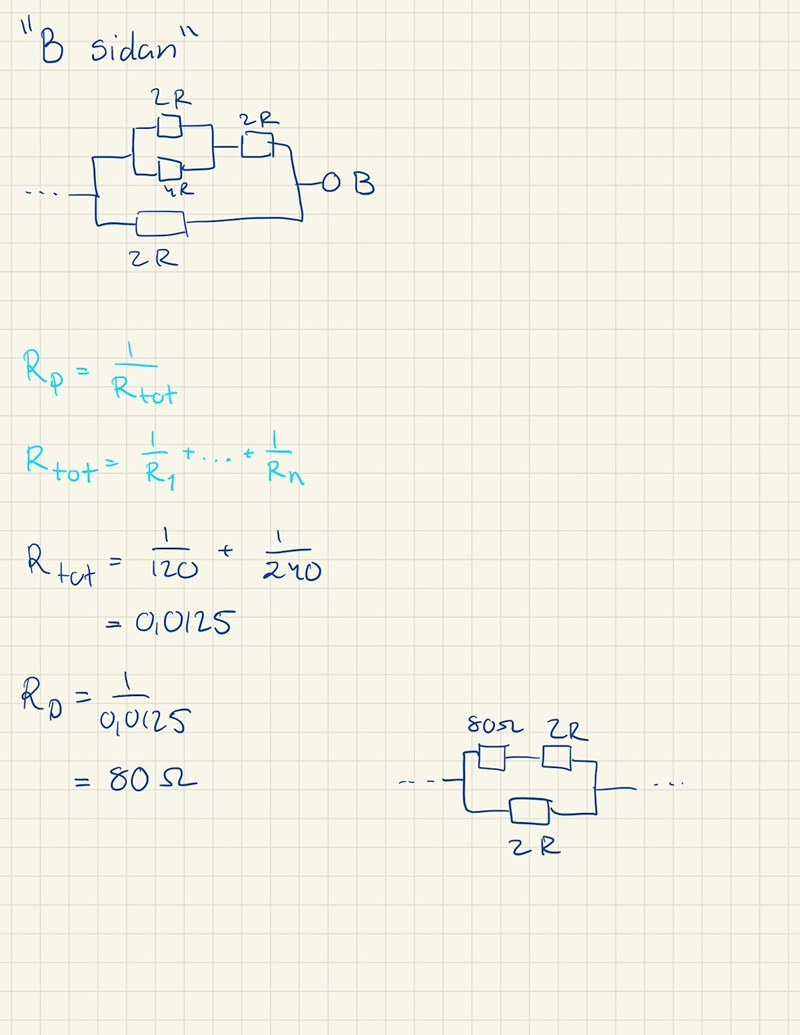 "B sidan"
2R
2R
4R
... B
2R
Rp = 1/Rtot
Rtot = 1/R1 + ... + 1/Rn
Rtot = 1/120 + 1/240
= 0,0125
Rp = 1/0,0125
= 80 Ω
80Ω 2R
... ...
2R